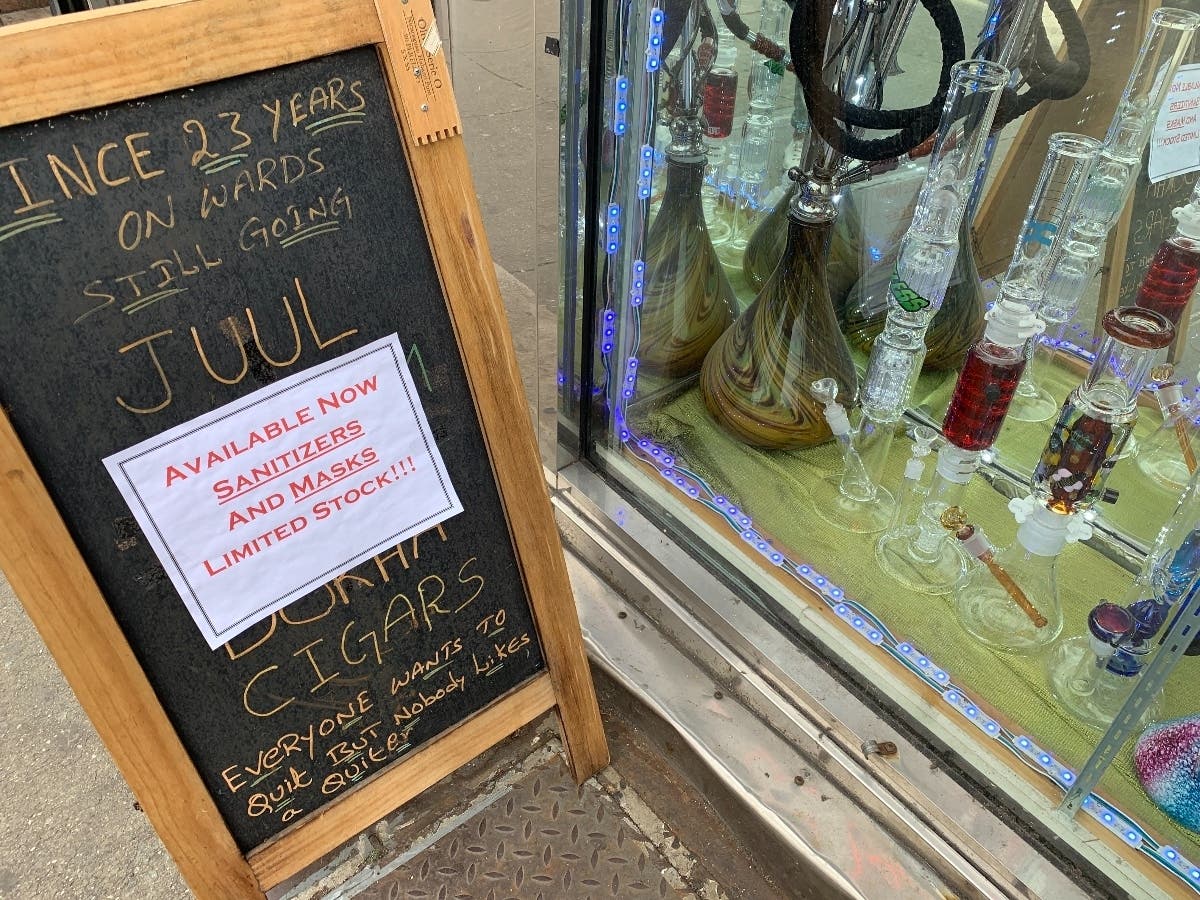 INCE 23 YEARS
ON WARDS
STILL GOING
JUUL
AVAILABLE NOW
SANITIZERS
AND MASKS
LIMITED STOCK!!!
CIGARS
EVERYONE WANTS TO
QUIT BUT NOBODY LIKES
a QUITER
Serie O